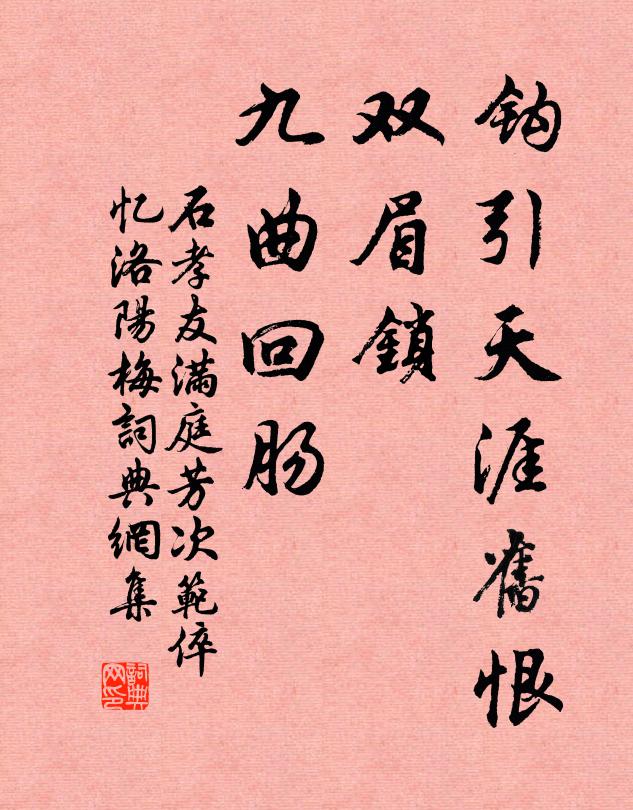 钩引天涯舊恨
双眉鎖
九曲回肠
石孝友满庭芳次範倅
忆洛陽梅詞典網集
詞典网印